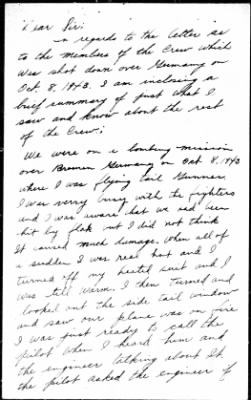 Dear Sir:
in regards to the letter as
to the members of the Crew which
was shot down over Germany on
Oct. 8, 1943. I am inclosing a
brief summary of just what I
saw and know about the rest
of the Crew:
We were on a bombing mission
over Bremen Germany on Oct 8, 1943
where I was flying tail Gunner.
I was verry busy with the fighters
and I was aware that we had been
hit by flak but I did not think
It caused much damage. When all of
a sudden I was real hot and I
turned off my heated suit and I
was still warm. I then turned and
looked out the side tail window
and saw our plane was on fire
I was just ready to call the
pilot when I heard him and
the engineer talking about It.
the pilot asked the engineer if